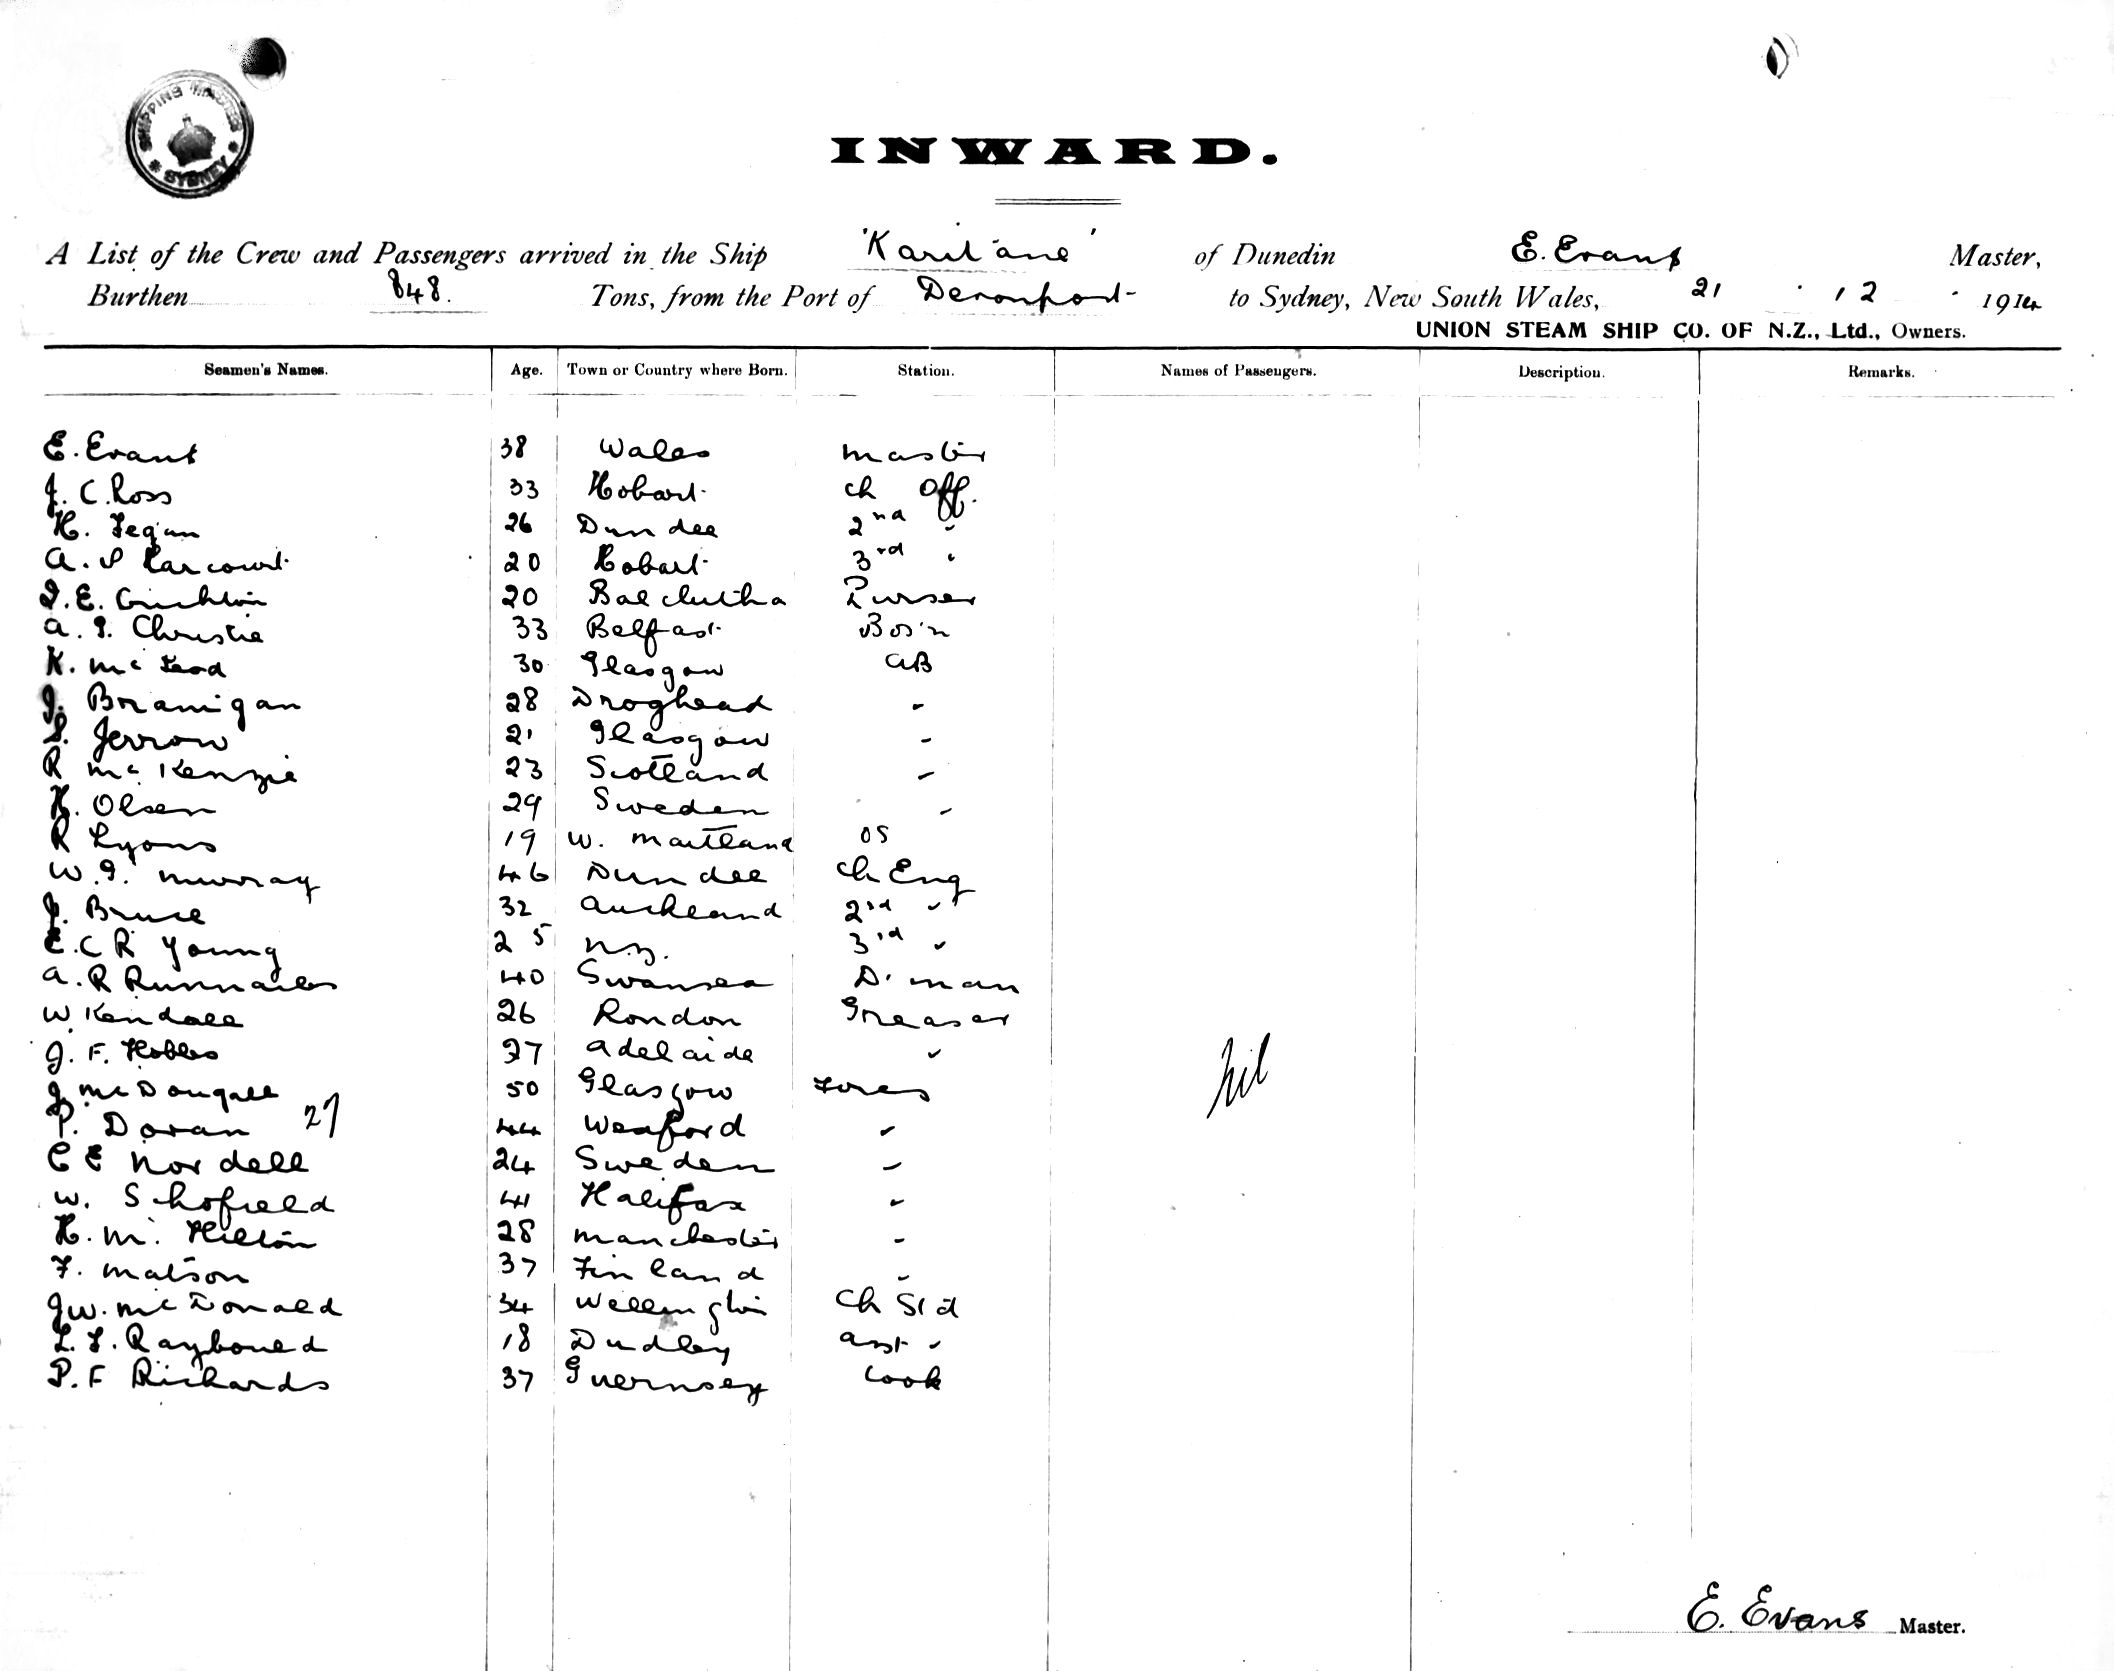 SHIPPING MASTER
SYDNEY
INWARD.
A List of the Crew and Passengers arrived in the Ship 'Karitane' of Dunedin E. Evans Master,
Burthen 848. Tons, from the Port of Devonport to Sydney, New South Wales, 21 . 12 . 1914
UNION STEAM SHIP CO. OF N.Z., Ltd., Owners.
Seamen's Names. Age. Town or Country where Born. Station. Names of Passengers. Description. Remarks.
E. Evans 38 Wales Master
J. C. Ross 33 Hobart ch Off.
H. Fegan 26 Dundee 2nd "
A. S Harcourt 20 Hobart 3rd "
J. E. Crichton 20 Balclutha Purser
A. G. Christie 33 Belfast Bos'n
K. McLeod 30 Glasgow AB
J. Branigan 28 Droghead "
S. Jerrow 21 Glasgow "
R McKenzie 23 Scotland "
H. Olsen 29 Sweden "
R Lyons 19 W. Maitland OS
W. G. Murray 46 Dundee Ch Eng
J. Bruce 32 Auckland 2nd "
E. C R Young 25 N.Z. 3rd "
A. R Runnacles 40 Swansea D'man
W Kendall 26 London Greaser
J. F. Hobbs 27 Adelaide "
J McDougall 50 Glasgow Fires
P. Doran 27 44 Wexford "
C E Nordell 24 Sweden "
W. Schofield 41 Halifax "
H. M. Hilton 28 Manchester "
F. Matson 37 Finland "
J W. McDonald 34 Wellington Ch Std
L. F. Raybould 18 Dudley Asst "
P. F Richards 37 Guernsey Cook
Nil
E. Evans Master.